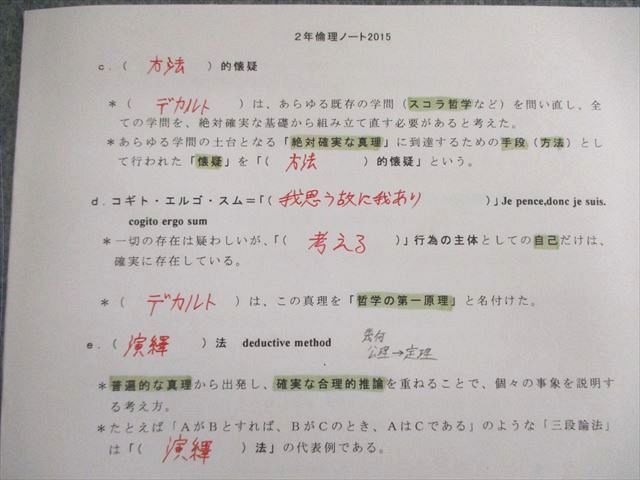 ２年倫理ノート2015
ｃ．（　方法　）的懐疑
＊（　デカルト　）は、あらゆる既存の学問（スコラ哲学など）を問い直し、全
ての学問を、絶対確実な基礎から組み立て直す必要があると考えた。
＊あらゆる学問の土台となる「絶対確実な真理」に到達するための手段（方法）とし
て行われた「懐疑」を「（　方法　）的懐疑」という。
ｄ．コギト・エルゴ・スム＝「（　我思う故に我あり　）」Je pence,donc je suis.
cogito ergo sum
＊一切の存在は疑わしいが、「（　考える　）」行為の主体としての自己だけは、
確実に存在している。
＊（　デカルト　）は、この真理を「哲学の第一原理」と名付けた。
ｅ．（　演繹　）法　deductive method
幾何
公理→定理
＊普遍的な真理から出発し、確実な合理的推論を重ねることで、個々の事象を説明す
る考え方。
＊たとえば「ＡがＢとすれば、ＢがＣのとき、ＡはＣである」のような「三段論法」
は「（　演繹　）法」の代表例である。